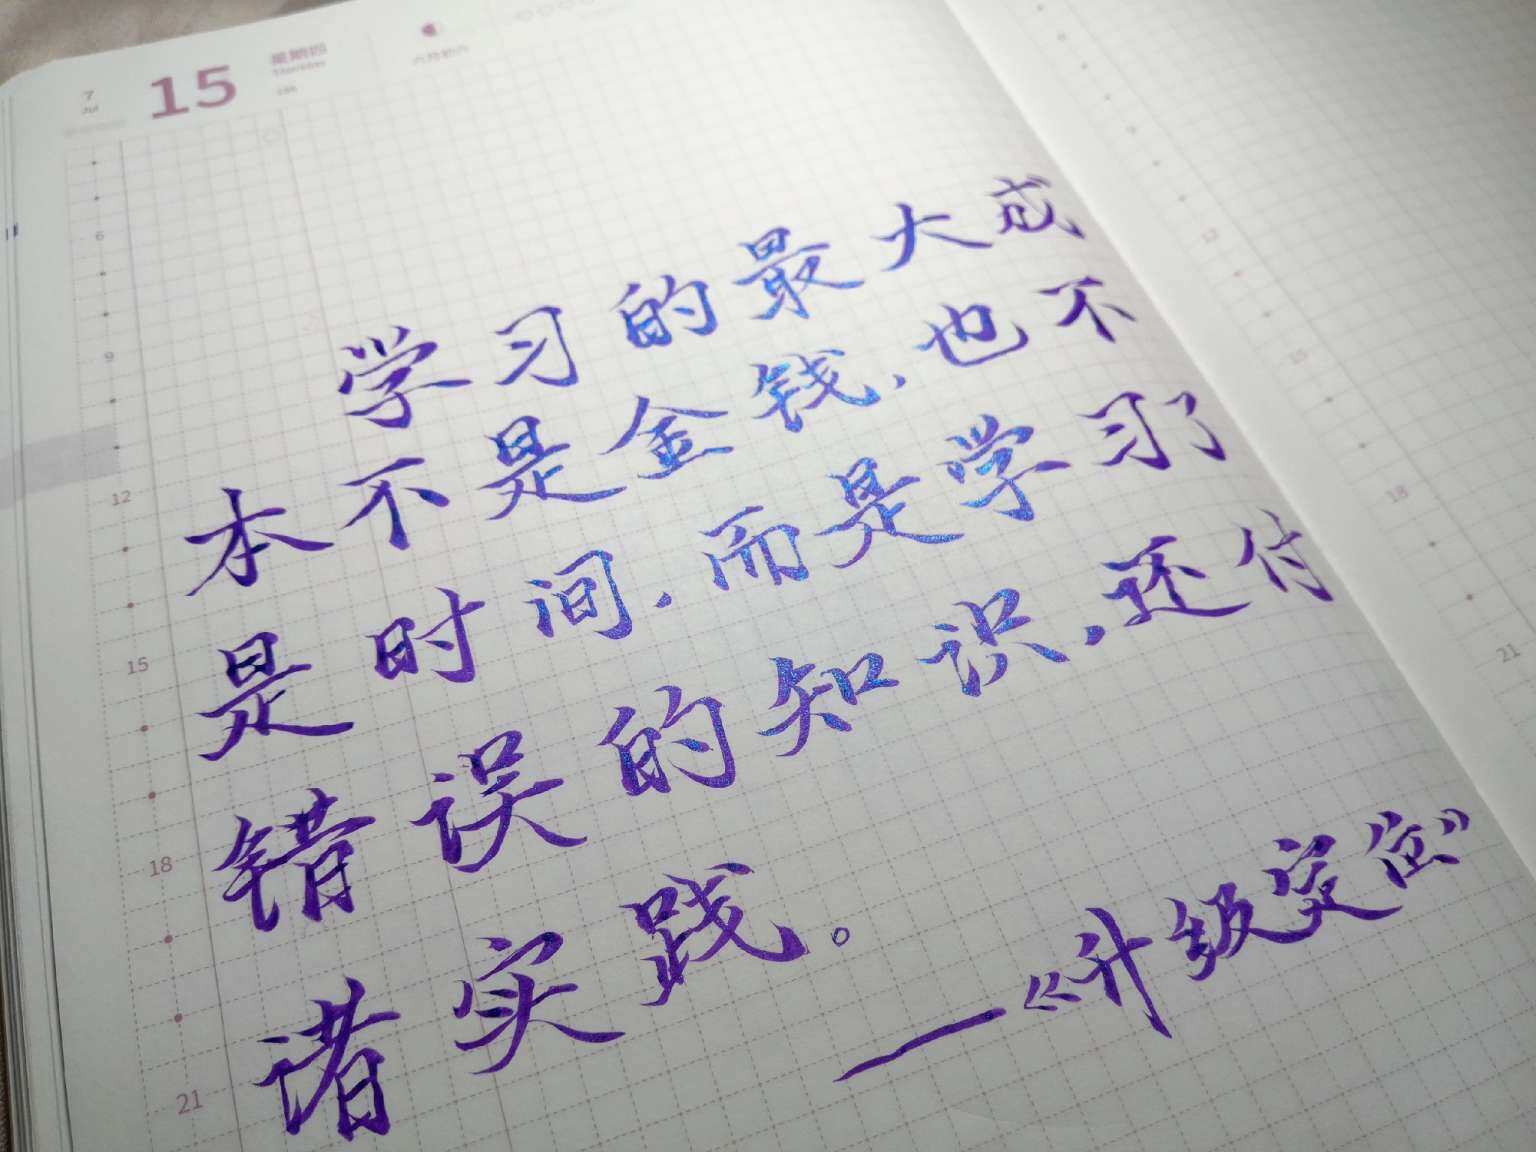 7
Jul
15
星期四
Thursday
六月初六
学习的最大成
本不是金钱,也不
是时间,而是学习了
错误的知识,还付
诸实践。
—《升级定位》
6
9
12
15
18
21
12
15
18
21